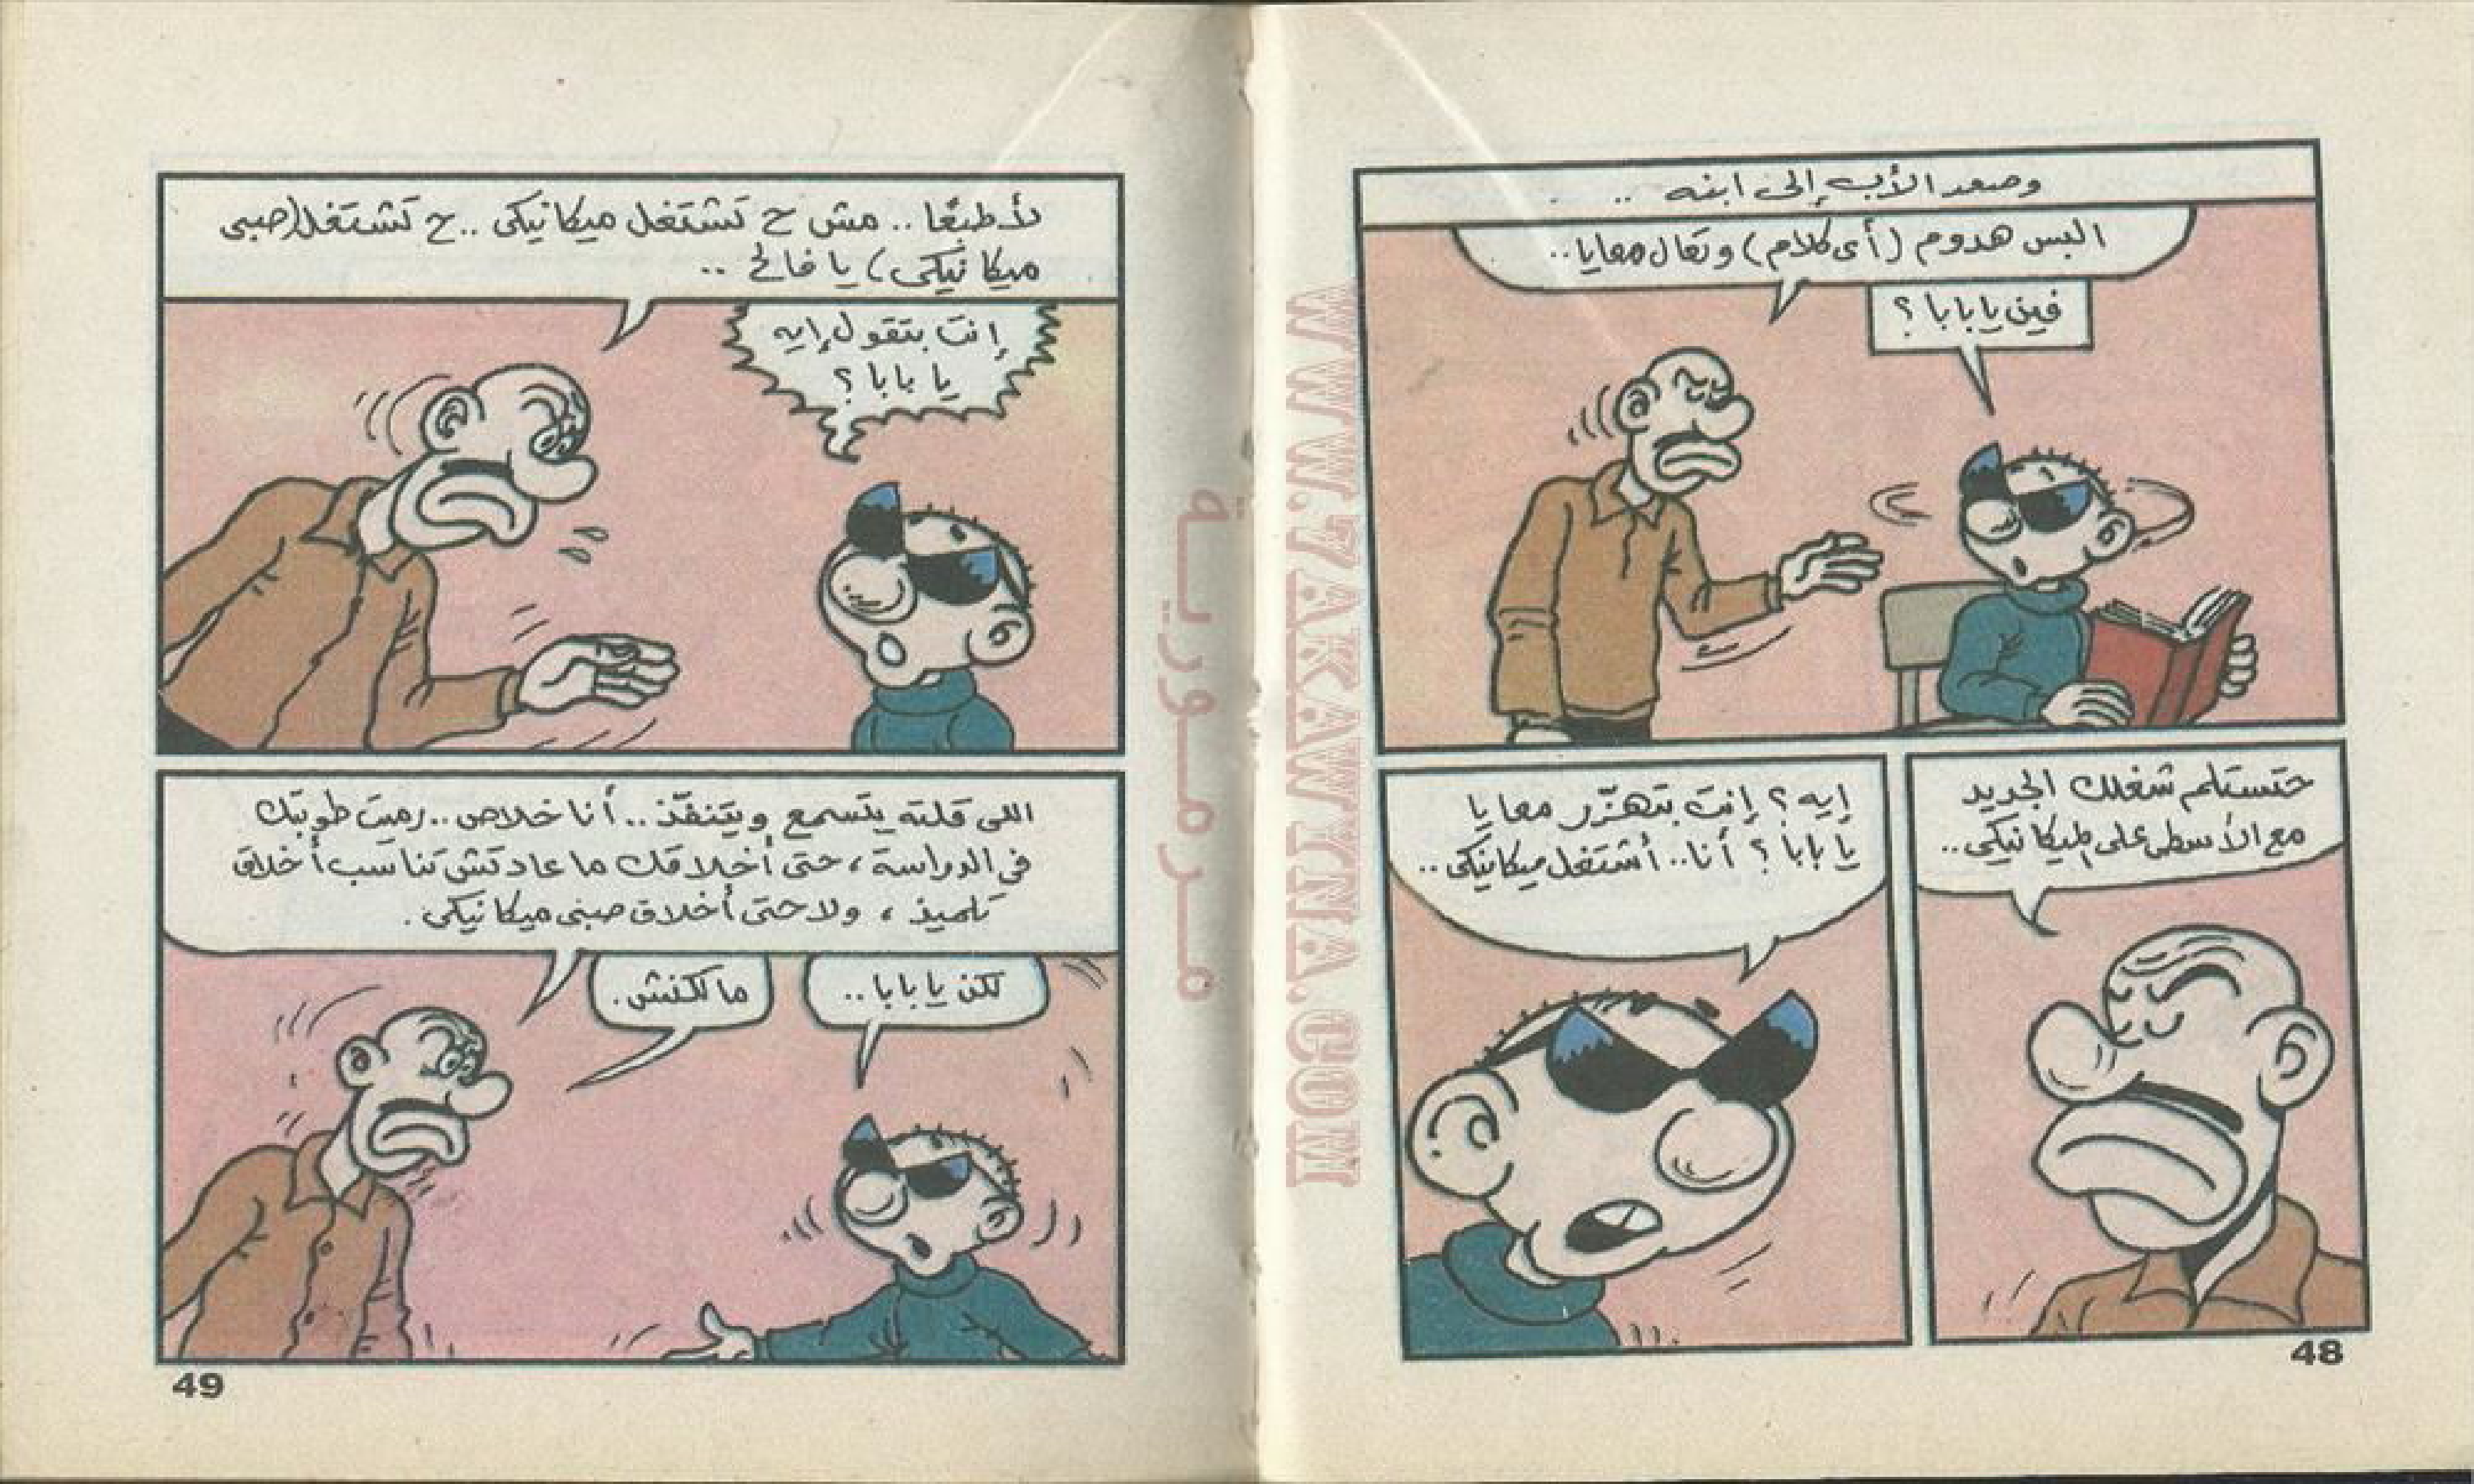 وصعد الأب إلى ابنه ..
البس هدوم (أى كلام) وتعال معايا..
فين يا بابا ؟
حتستلم شغلك الجديد
مع الأسطى على الميكانيكى..
إيه ؟ إنت بتهزّر معايا
يا بابا ؟ أنا.. أشتغل ميكانيكى..
48
لأ طبعًا .. مش ح تشتغل ميكانيكى .. ح تشتغل (صبى
ميكانيكى) يا فالح ..
إنت بتقول إيه
يا بابا ؟
اللى قلته يتسمع ويتنفّذ .. أنا خلاص .. رميت طوبتك
فى الدراسة ، حتى أخلاقك ما عادتش تناسب أخلاق
تلميذ ، ولا حتى أخلاق صبى ميكانيكى .
لكن يا بابا ..
ما لكنش .
49
مرمورية
WWW.7AKAWINA.COM